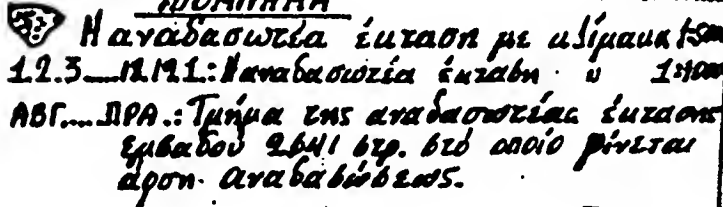 ΥΠΟΜΝΗΜΑ
Η αναδασωτέα έκταση με κλίμακα
1.2.3....12.1: Η αναδασωτέα έκταση
ΑΒΓ....ΠΡΑ.: Τμήμα της αναδασωτέας έκτασης
εμβαδού στρ. στό οποίο γίνεται
άρση αναδασώσεως.